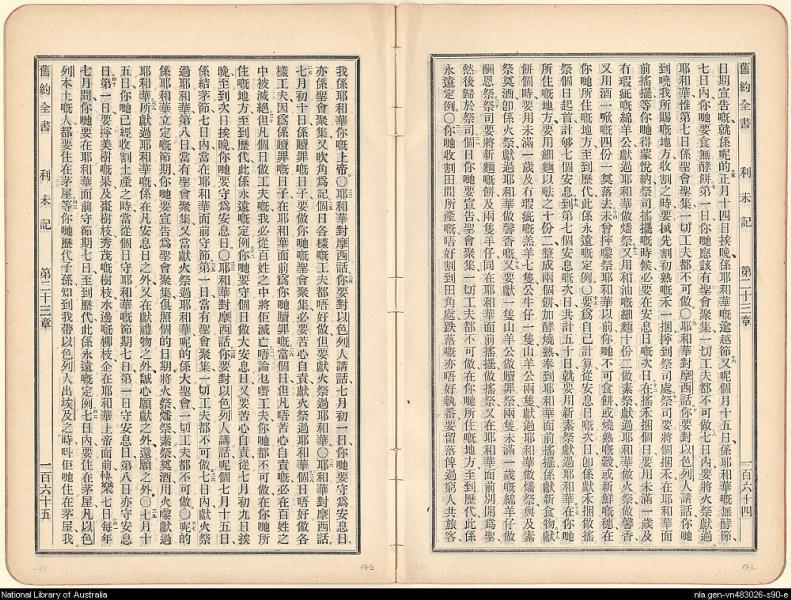 舊約全書 利未記 第二十三章 一百六十四
日期宣告嘅就係呢的正月十四日挨晚係耶和華嘅逾越節又呢個月十五日係耶和華嘅無酵節
七日內你哋要食無酵餅第一日你哋應該有聖會聚集一切工夫都不可做七日內要將火祭獻過
耶和華惟第七日係聖會聚集一切工夫都不可做○耶和華對摩西話你要對以色列人講話你哋
到曉我所賜嘅地方收割之時要先割初熟嘅禾一捆到祭司處祭司要將個捆禾在耶和華面
前搖擺等你哋得蒙悅納祭司搖擺嘅時候必要在安息日嘅次日在搖禾捆個日要用未滿一歲及
有瑕疵嘅綿羊公獻過耶和華做燔祭又用和油嘅細麵十份二做素祭獻過耶和華做火祭做馨香
又用酒一嘅四份一奠落去未曾嚟祭耶和華以前你哋不可食餅或燒熟嘅穀或新鮮嘅穗在
你哋所住嘅地方至到歷代此係永遠嘅定例○要爲自己計算從安息日嘅次日卽係獻禾捆做搖
祭個日起首計够七個安息到第七個安息嘅次日共計五十日就要用新素祭獻過耶和華在你哋
所住嘅地方要用細麵十份二整成兩個餅加酵燒熟奉到耶和華面前搖擺係獻新食物獻
餅個時要用未滿一歲及有瑕疵嘅羔羊七隻公牛仔一隻山羊公兩隻獻過耶和華做燔祭與及素
祭奠酒卽係火祭獻過耶和華做馨香嘅又要獻一隻山羊公做贖罪祭兩隻未滿一歲嘅綿羊仔做
酬恩祭祭司要將新麵嘅餅及兩隻羊仔同在耶和華面前搖擺做搖祭又在耶和華面前別開爲聖
然後歸於祭司個日你哋要宣告聖會聚集一切工夫都不可做在你哋所住嘅地方至到歷代此係
永遠定例○你哋收割田間所產嘅唔好割到田角處跌落嘅亦唔好執番要留落俾過窮人共旅客
我係耶和華你嘅上帝○耶和華對摩西話你要對以色列人講話七月初一日你哋要守爲安息日
亦係聖會聚集又吹角爲記個日各樣嘅工夫都唔好做但要獻火祭過耶和華○耶和華對摩西話
七月初十日係贖罪嘅日子你哋要做聖會聚集必要苦心自責獻火祭過耶和華個日唔好做各
樣工夫因爲係贖罪嘅日子在耶和華面前爲你哋贖罪嘅當個日但凡唔苦心自責嘅必在百姓之
中被滅絕但凡個日做工夫嘅我必從百姓之中將佢滅亡唔論乜嘢工夫你哋都不可做在你哋所
住嘅地方至到歷代此係永遠嘅定例你哋要守個日做大安息日又要苦心自責從七月初九日挨
晚至到次日挨晚你哋要守爲安息日○耶和華對摩西話你要對以色列人講話呢個七月十五日
係結茅節七日內當在耶和華面前守節第一日當有聖會聚集一切工夫都不可做七日內獻火祭
過耶和華第八日當有聖會聚集又當獻火祭過耶和華呢的係大聖會一切工夫都不可做○呢的
係耶和華立定嘅節期你哋要宣告爲聖會聚集俱照個的日期將火祭燔祭素祭奠酒用火獻過
耶和華所獻過耶和華嘅係在凡安息日之外又在獻禮物之外誠心願獻之外還願之外○七月十
五日你哋已經收割土產之時當從個日守耶和華嘅節期七日第一日守安息日第八日亦守安息
日第一日要攞美樹嘅果及棗樹枝秀茂嘅樹枝水邊嘅柳枝企在耶和華上帝面前快樂七日每年
七月間你哋要在耶和華面前守節期七日至到歷代此係永遠嘅定例七日內要住在茅屋凡以色
列本土嘅人都要住在茅屋等你哋歷代子孫知到我帶以色列人出埃及之時呌佢哋住在茅屋我
舊約全書 利未記 第二十三章 一百六十五
173
172
National Library of Australia
nla.gen-vn483026-s90-e